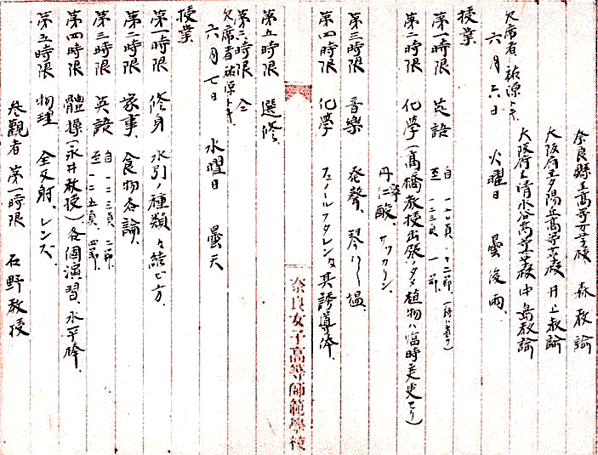 奈良縣立高等女学校 森教諭
大阪府立夕陽丘高等女学校 井上教諭
大阪府立清水谷高等女学校 中島教諭
六月六日 火曜日 曇後雨
欠席者 祐源トキ
授業
第一時限 英語 自一二〇頁 一二節 至一二三頁 一節
第二時限 化學(髙橋教授出張ノタメ植物ハ臨時変更セリ)
丹仁酸、サッカリン
第三時限 音樂 発聲、琴ハ
第四時限 化學 フェノールフタレン及其誘導体、
第五時限 選修、
第三時限 仝
欠席者祐源トキ
六月七日 水曜日 曇天
授業
第一時限 修身 水引ノ種類々結ビ方、
第二時限 家事、食物各論、
第三時限 英語 自一二三頁、二節、至一二五頁、四節、
第四時限 體操(永井教授)各個演習、水平棒、
第五時限 物理 全反射、レンズ、
参觀者 第一時限 石野教授
奈良女子高等師範學校